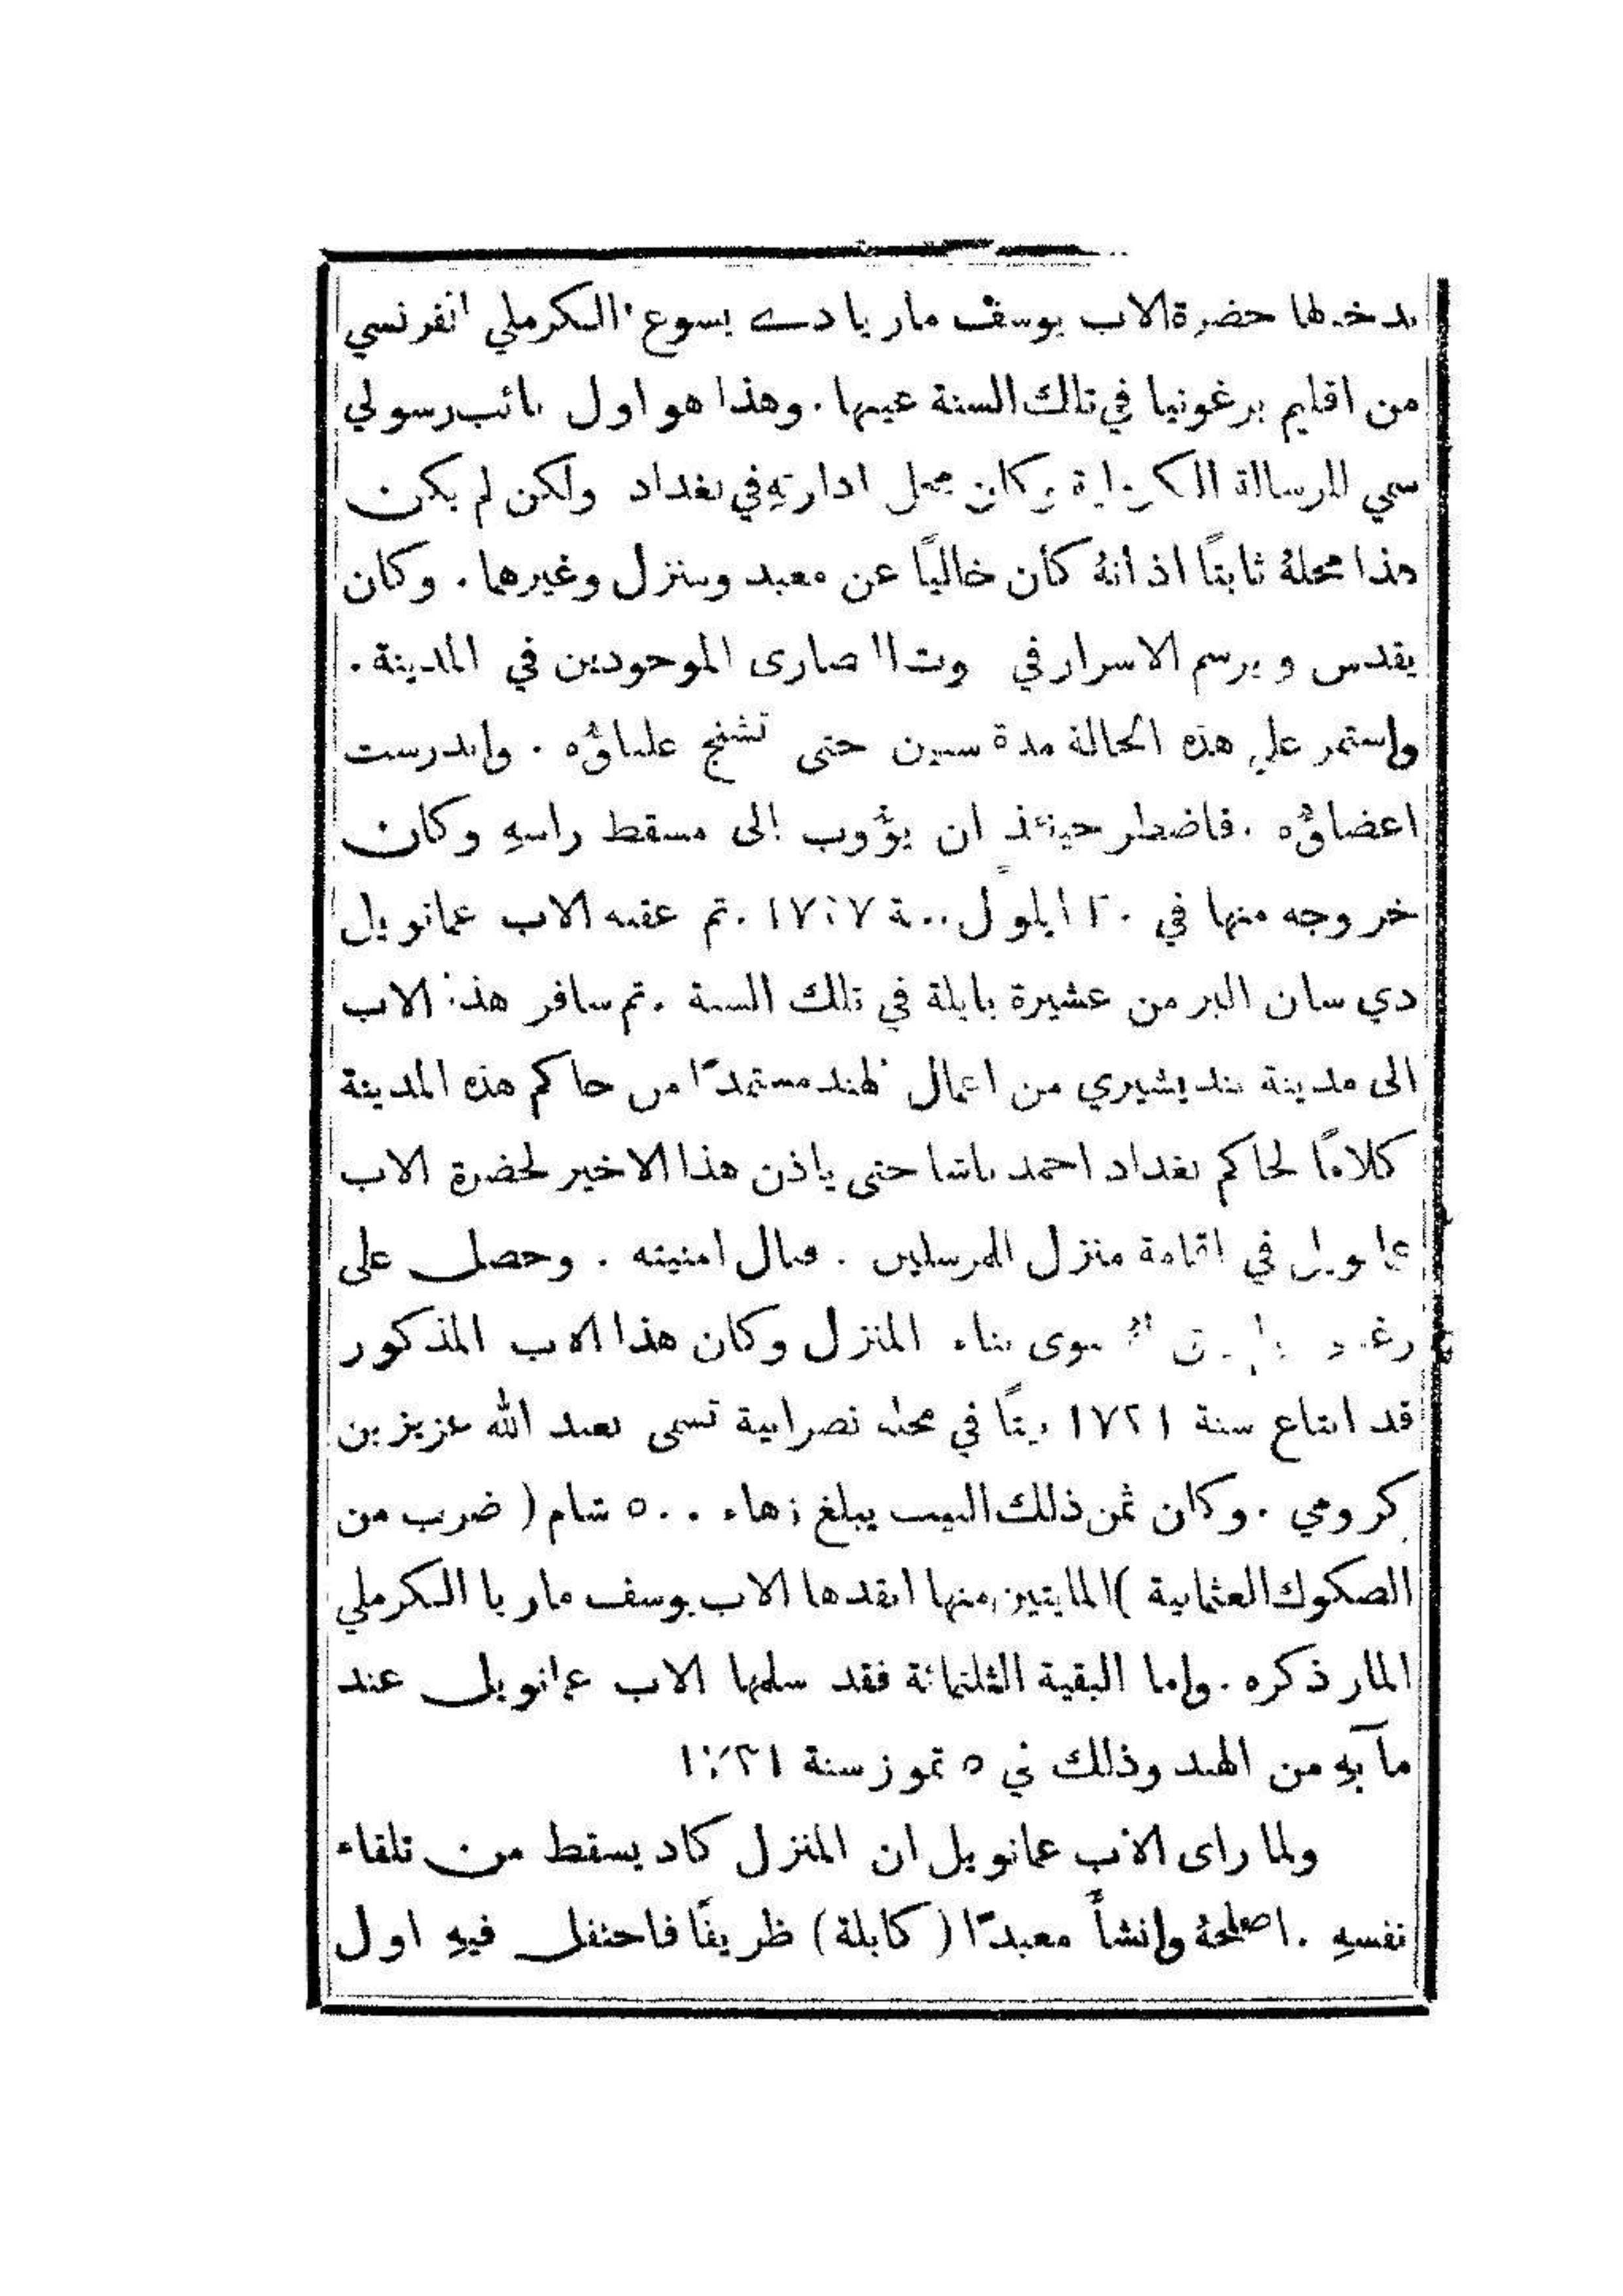 حضرة الاب يوسف ماريا دے يسوع الكرملي الفرنسي
من اقليم برغونيا في تلك السنة عينها . وهذا هو اول نائب رسولي
سمي للرسالة وكان محل ادارته في بغداد ولكن لم يكن
هذا محلهُ ثابتًا اذ انهُ كان خاليًا عن معبد ومنزل وغيرها . وكان
يقدس و يرسم الاسرار في الموجودين في المدينة .
واستمر على هذه الحالة مدة سنين حتى تشنج علباؤُه . واندرست
اعضاؤُه . فاضطر حينئذٍ ان يؤُوب الى مسقط راسهِ وكان
خروجه منها في ايلول . ثم عقبه الاب عمانويل
دي سان البر من عشيرة بايلة في تلك السنة . ثم سافر هذا الاب
الى مدينة بنديشيري من اعمال الهند مستمدًّا من حاكم هذه المدينة
كلامًا لحاكم بغداد احمد باشا حتى ياذن هذا الاخير لحضرة الاب
عمانويل في اقامة منزل للمرسلين . فنال امنيته . وحصل على
سوى بناء المنزل وكان هذا الاب المذكور
قد ابتاع سنة ١٧٢١ بيتًا في محلة نصرانية تسمى بعبد الله عزيز بن
كرومي . وكان ثمن ذلك البيت يبلغ زهاء ٥٠٠ شام ( ضرب من
الصكوك العثمانية ) المايتين منها انقدها الاب يوسف ماريا الكرملي
المار ذكره . واما البقية الثلثمائة فقد سلمها الاب عمانويل عند
مآبهِ من الهند وذلك في ٥ تموز سنة
ولما راى الاب عمانويل ان المنزل كاد يسقط من تلقاء
نفسهِ . اصلحهُ وانشأَ معبدًا ( كابلة ) ظريفًا فاحتفل فيهِ اول